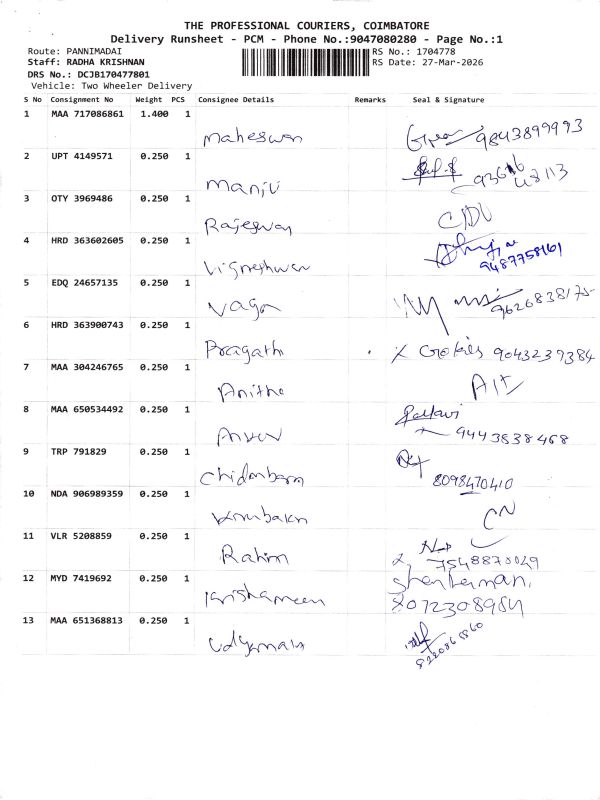 THE PROFESSIONAL COURIERS, COIMBATORE
Delivery Runsheet - PCM - Phone No.:9047080280 - Page No.:1
Route: PANNIMADAI RS No.: 1704778
Staff: RADHA KRISHNAN RS Date: 27-Mar-2026
DRS No.: DCJB170477801
Vehicle: Two Wheeler Delivery
S No Consignment No Weight PCS Consignee Details Remarks Seal & Signature
1 MAA 717086861 1.400 1
Maheswari 9843899993
2 UPT 4149571 0.250 1
Manju
3 OTY 3969486 0.250 1
Rajeswari
4 HRD 363602605 0.250 1
Vigneshwar 9487758161
5 EDQ 24657135 0.250 1
9626838175
6 HRD 363900743 0.250 1
Pragath Cookies 9043239384
7 MAA 304246765 0.250 1
Anitha
8 MAA 650534492 0.250 1
Pallavi
9443838468
9 TRP 791829 0.250 1
Chidambara 8098470410
10 NDA 906989359 0.250 1
CN
11 VLR 5208859 0.250 1
Rahim 7548870049
12 MYD 7419692 0.250 1
8072308984
13 MAA 651368813 0.250 1
Udyamala